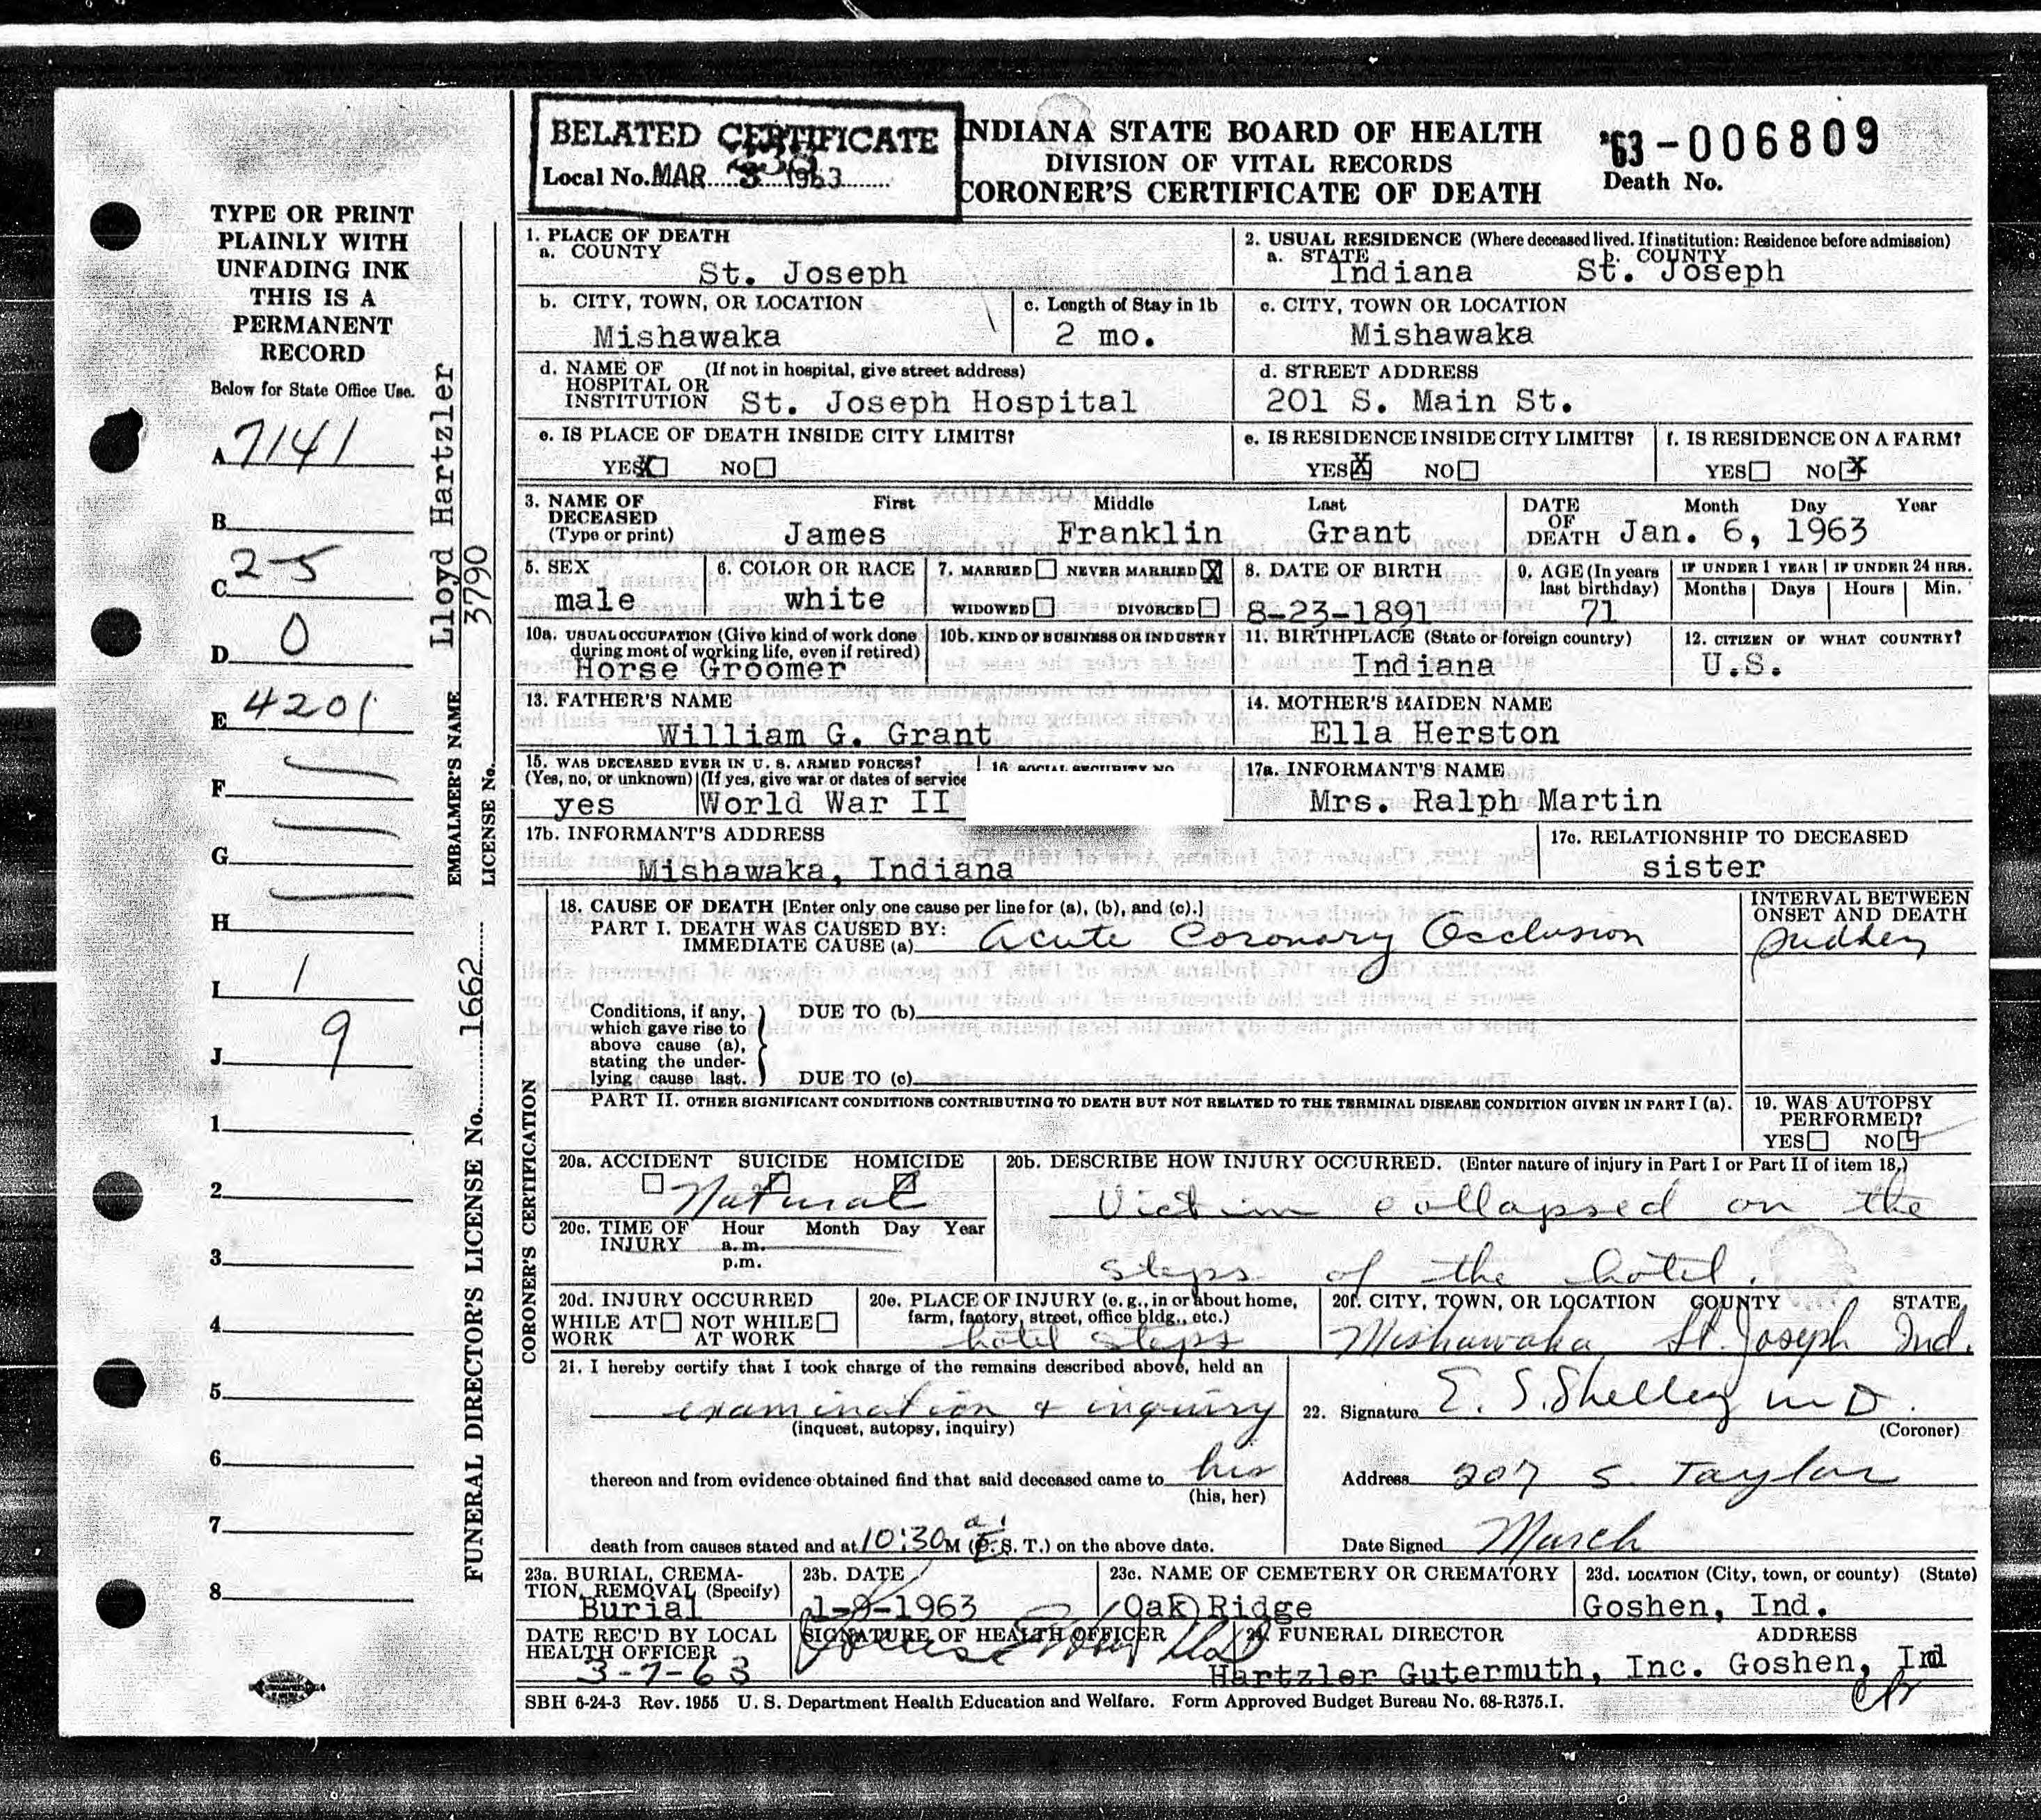 BELATED CERTIFICATE
Local No. MAR 1963
INDIANA STATE BOARD OF HEALTH
DIVISION OF VITAL RECORDS
CORONER'S CERTIFICATE OF DEATH
'63-006809
Death No.
TYPE OR PRINT
PLAINLY WITH
UNFADING INK
THIS IS A
PERMANENT
RECORD
Below for State Office Use.
A 7141
B
C 2-5
D 0
E 4201
F
G
H
I 1
J 9
1
2
3
4
5
6
7
8
EMBALMER'S NAME Lloyd Hartzler
LICENSE No. 3790
FUNERAL DIRECTOR'S LICENSE No. 1662
1. PLACE OF DEATH
a. COUNTY
St. Joseph
2. USUAL RESIDENCE (Where deceased lived. If institution: Residence before admission)
a. STATE b. COUNTY
Indiana St. Joseph
b. CITY, TOWN, OR LOCATION
Mishawaka
c. Length of Stay in 1b
2 mo.
c. CITY, TOWN OR LOCATION
Mishawaka
d. NAME OF (If not in hospital, give street address)
HOSPITAL OR
INSTITUTION St. Joseph Hospital
d. STREET ADDRESS
201 S. Main St.
e. IS PLACE OF DEATH INSIDE CITY LIMITS?
YES X NO
e. IS RESIDENCE INSIDE CITY LIMITS?
YES X NO
f. IS RESIDENCE ON A FARM?
YES NO X
3. NAME OF First Middle Last
DECEASED
(Type or print) James Franklin Grant
DATE Month Day Year
OF
DEATH Jan. 6, 1963
5. SEX
male
6. COLOR OR RACE
white
7. MARRIED NEVER MARRIED X
WIDOWED DIVORCED
8. DATE OF BIRTH
8-23-1891
9. AGE (In years
last birthday)
71
IF UNDER 1 YEAR IF UNDER 24 HRS.
Months Days Hours Min.
10a. USUAL OCCUPATION (Give kind of work done
during most of working life, even if retired)
Horse Groomer
10b. KIND OF BUSINESS OR INDUSTRY
11. BIRTHPLACE (State or foreign country)
Indiana
12. CITIZEN OF WHAT COUNTRY?
U.S.
13. FATHER'S NAME
William G. Grant
14. MOTHER'S MAIDEN NAME
Ella Herston
15. WAS DECEASED EVER IN U. S. ARMED FORCES?
(Yes, no, or unknown) (If yes, give war or dates of service
yes World War II
16. SOCIAL SECURITY NO.
17a. INFORMANT'S NAME
Mrs. Ralph Martin
17b. INFORMANT'S ADDRESS
Mishawaka, Indiana
17c. RELATIONSHIP TO DECEASED
sister
CORONER'S CERTIFICATION
18. CAUSE OF DEATH [Enter only one cause per line for (a), (b), and (c).]
PART I. DEATH WAS CAUSED BY:
IMMEDIATE CAUSE (a) Acute Coronary Occlusion
INTERVAL BETWEEN
ONSET AND DEATH
sudden
Conditions, if any,
which gave rise to
above cause (a),
stating the under-
lying cause last.
DUE TO (b)
DUE TO (c)
PART II. OTHER SIGNIFICANT CONDITIONS CONTRIBUTING TO DEATH BUT NOT RELATED TO THE TERMINAL DISEASE CONDITION GIVEN IN PART I (a).
19. WAS AUTOPSY
PERFORMED?
YES NO
20a. ACCIDENT SUICIDE HOMICIDE
Natural
20b. DESCRIBE HOW INJURY OCCURRED. (Enter nature of injury in Part I or Part II of item 18.)
Victim collapsed on the
steps of the hotel.
20c. TIME OF Hour Month Day Year
INJURY a.m.
p.m.
20d. INJURY OCCURRED
WHILE AT NOT WHILE
WORK AT WORK
20e. PLACE OF INJURY (e. g., in or about home,
farm, factory, street, office bldg., etc.)
hotel steps
20f. CITY, TOWN, OR LOCATION COUNTY STATE
Mishawaka St. Joseph Ind.
21. I hereby certify that I took charge of the remains described above, held an
examination & inquiry
(inquest, autopsy, inquiry)
thereon and from evidence obtained find that said deceased came to his
(his, her)
death from causes stated and at 10:30 a M (E. S. T.) on the above date.
22. Signature E. S. Shelley MD.
(Coroner)
Address 207 S. Taylor
Date Signed March
23a. BURIAL, CREMA-
TION, REMOVAL (Specify)
Burial
23b. DATE
1-9-1963
23c. NAME OF CEMETERY OR CREMATORY
Oak Ridge
23d. LOCATION (City, town, or county) (State)
Goshen, Ind.
DATE REC'D BY LOCAL
HEALTH OFFICER
3-7-63
SIGNATURE OF HEALTH OFFICER
24. FUNERAL DIRECTOR ADDRESS
Hartzler Gutermuth, Inc. Goshen, Ind
SBH 6-24-3 Rev. 1955 U. S. Department Health Education and Welfare. Form Approved Budget Bureau No. 68-R375.I.